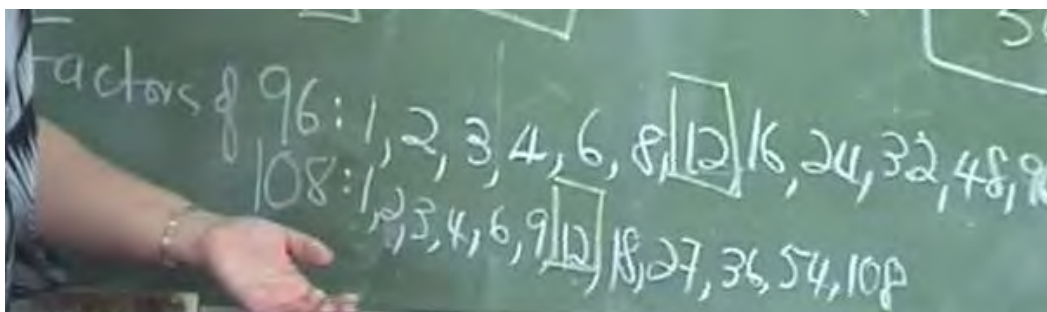 Factors of 96: 1, 2, 3, 4, 6, 8, 12, 16, 24, 32, 48, 96
108: 1, 2, 3, 4, 6, 9, 12, 18, 27, 36, 54, 108